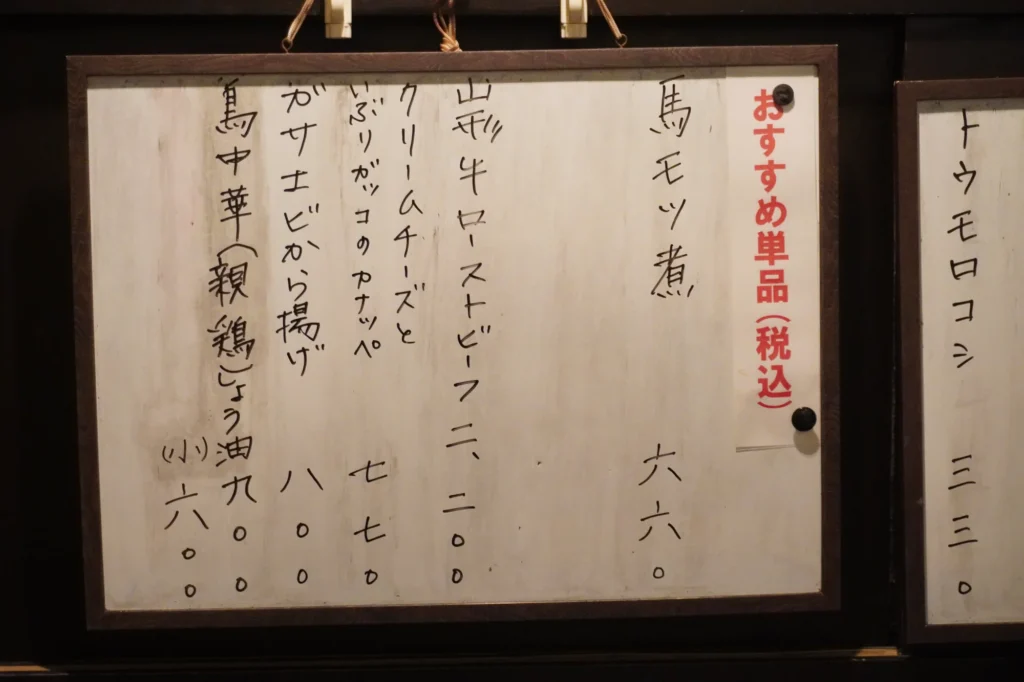 トウモロコシ 三三〇
おすすめ単品(税込)
馬モツ煮 六六〇
山形牛ローストビーフ 二、二〇〇
クリームチーズと
いぶりガッコのカナッペ 七七〇
ガサエビから揚げ 八〇〇
鳥中華(親鶏)しょう油 九〇〇
(小)六〇〇